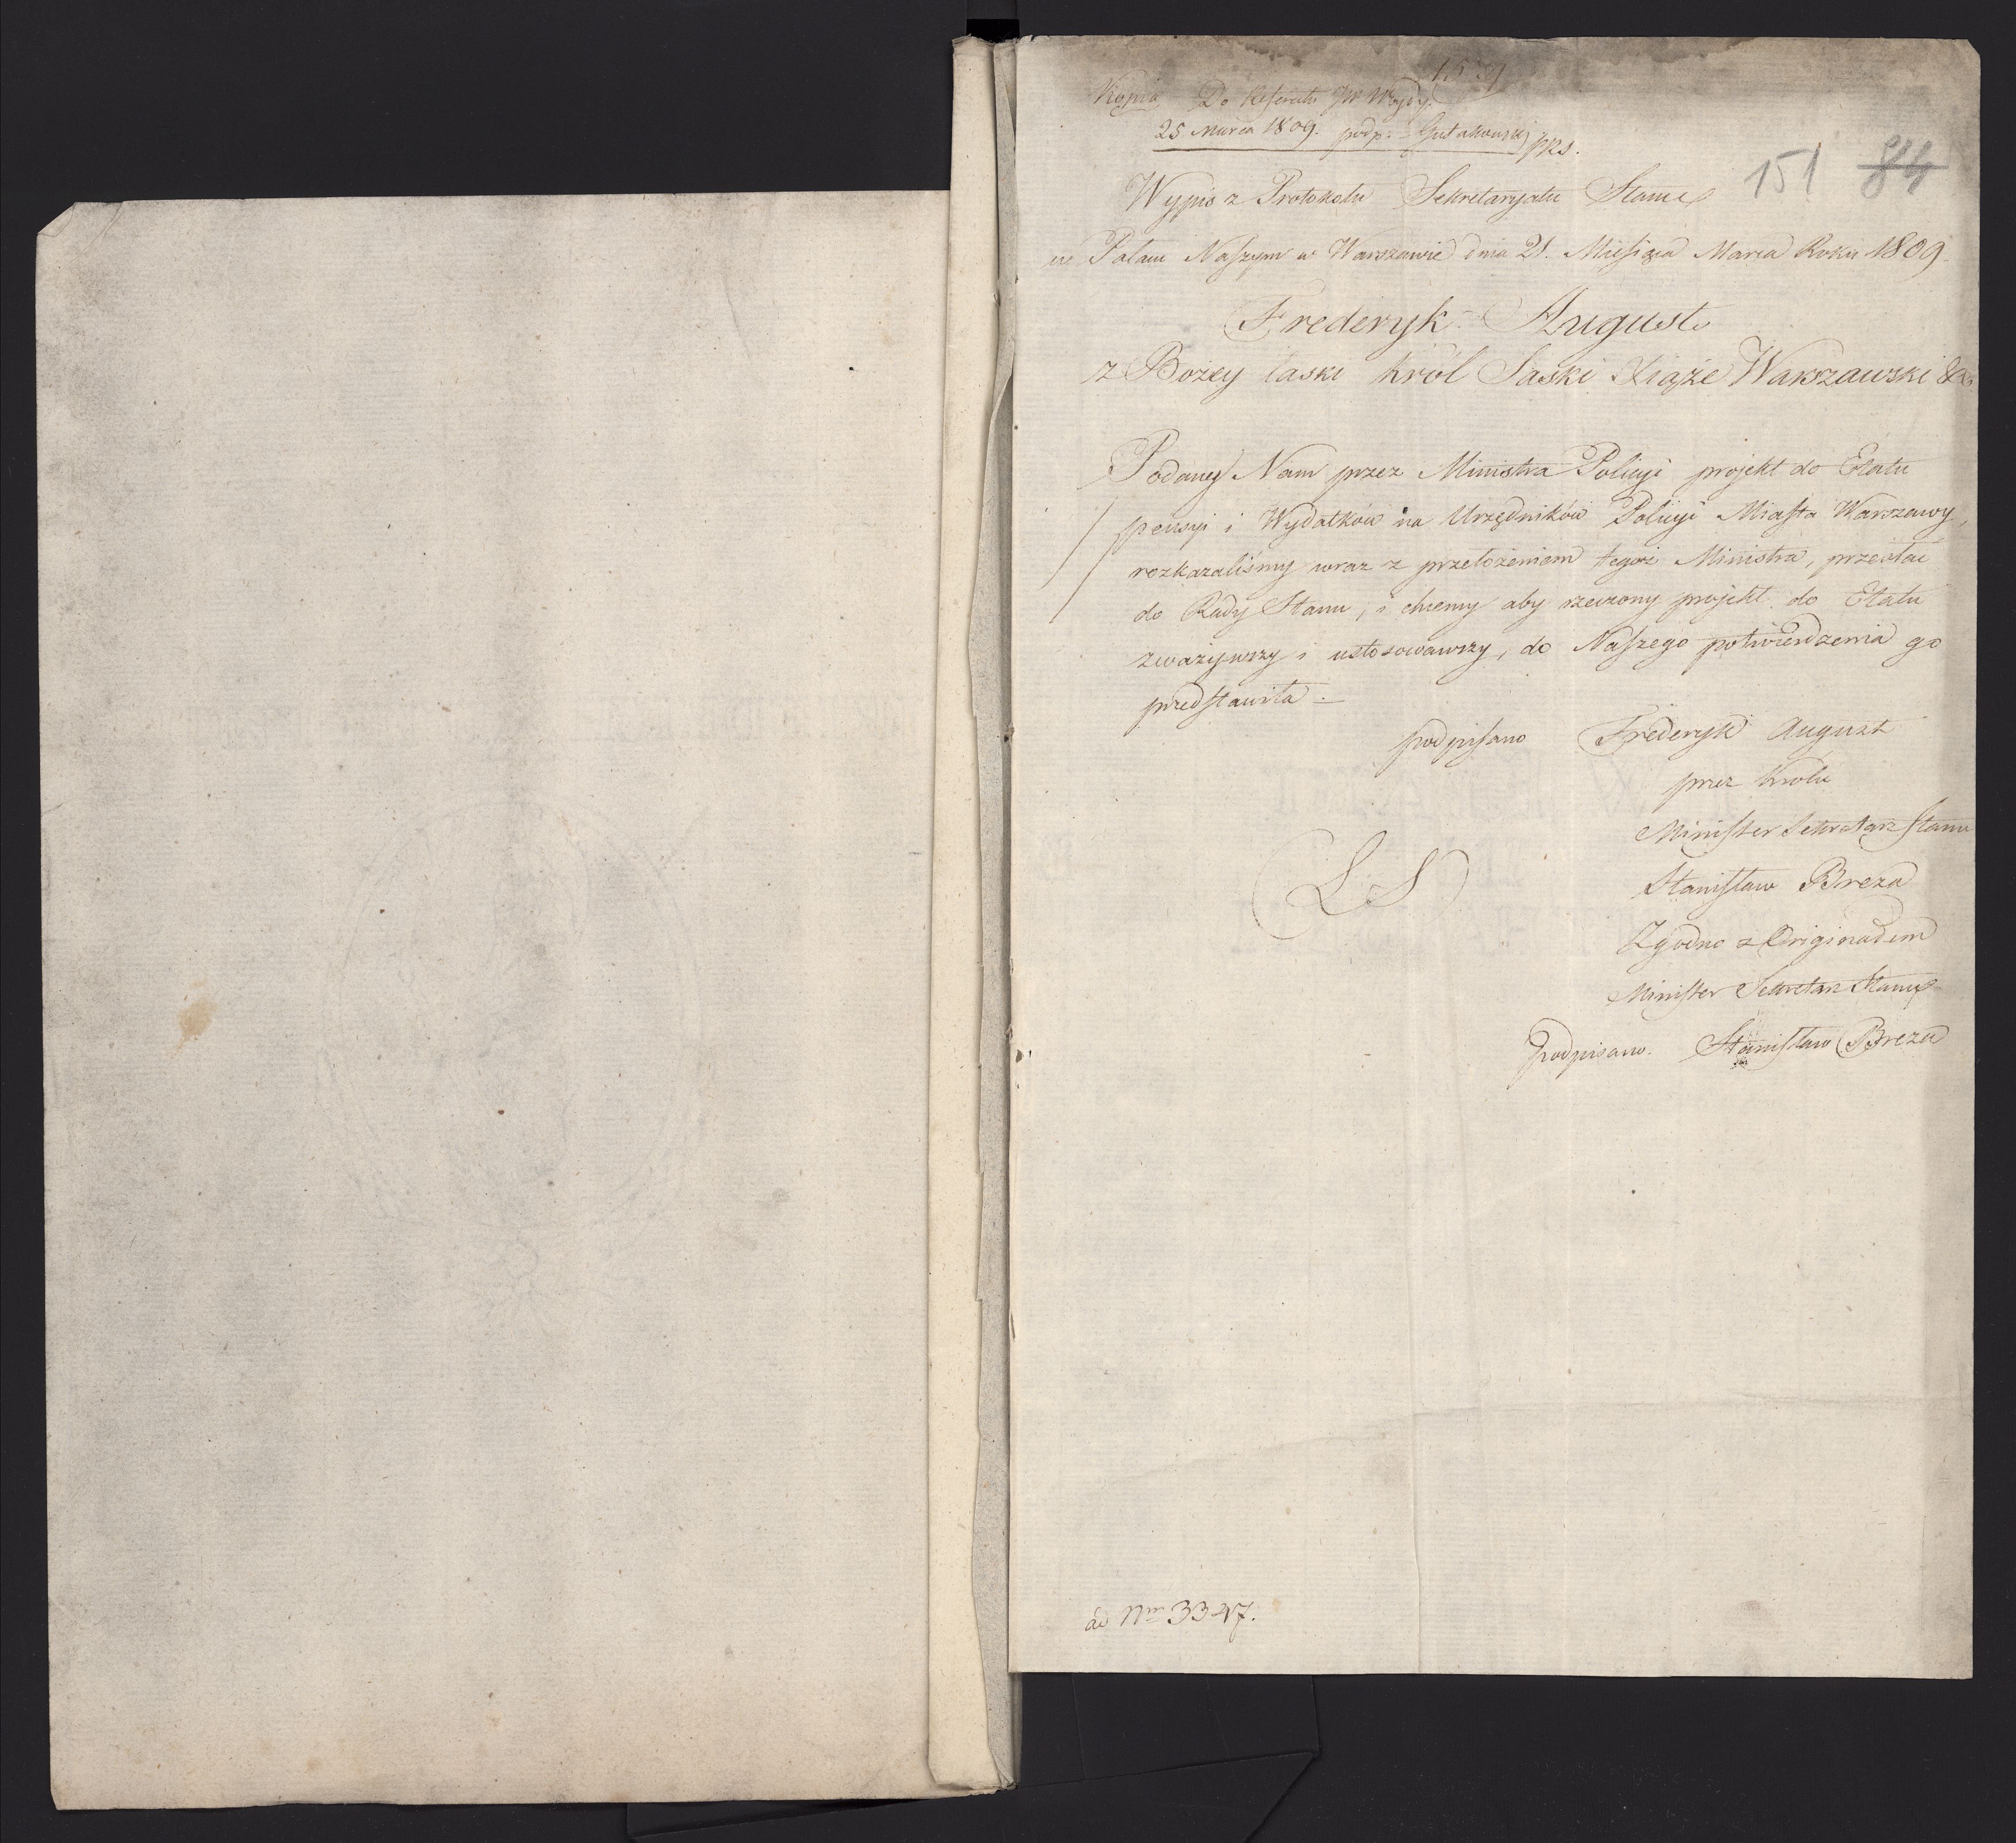 Kopia Do Referatu JW Woydy.
25 Marca 1809. podp: Gutakowski PRS.
151 84
Wypis z Protokołu Sekretaryatu Stanu
w Pałacu Naszym w Warszawie dnia 21. Miesiąca Marca Roku 1809
Frederyk August
z Bożey łaski Król Saski Xiąże Warszawski &c.
Podany Nam przez Ministra Policyi projekt do Etatu
pensyi i Wydatków na Urzędników Policyi Miasta Warszawy,
rozkazaliśmy wraz z przełożeniem tegoż Ministra, przesłać
do Rady Stanu, i chcemy aby rzeczony projekt do Etatu
zważywszy i ustosowawszy, do Naszego potwierdzenia go
przedstawiła.
podpisano Frederyk August
przez Króla
Minister Sekretarz Stanu
Stanisław Breza
(L.S)
Zgodno z Originałem
Minister Sekretarz Stanu
podpisano. Stanisław Breza
ad Nrm 3347.